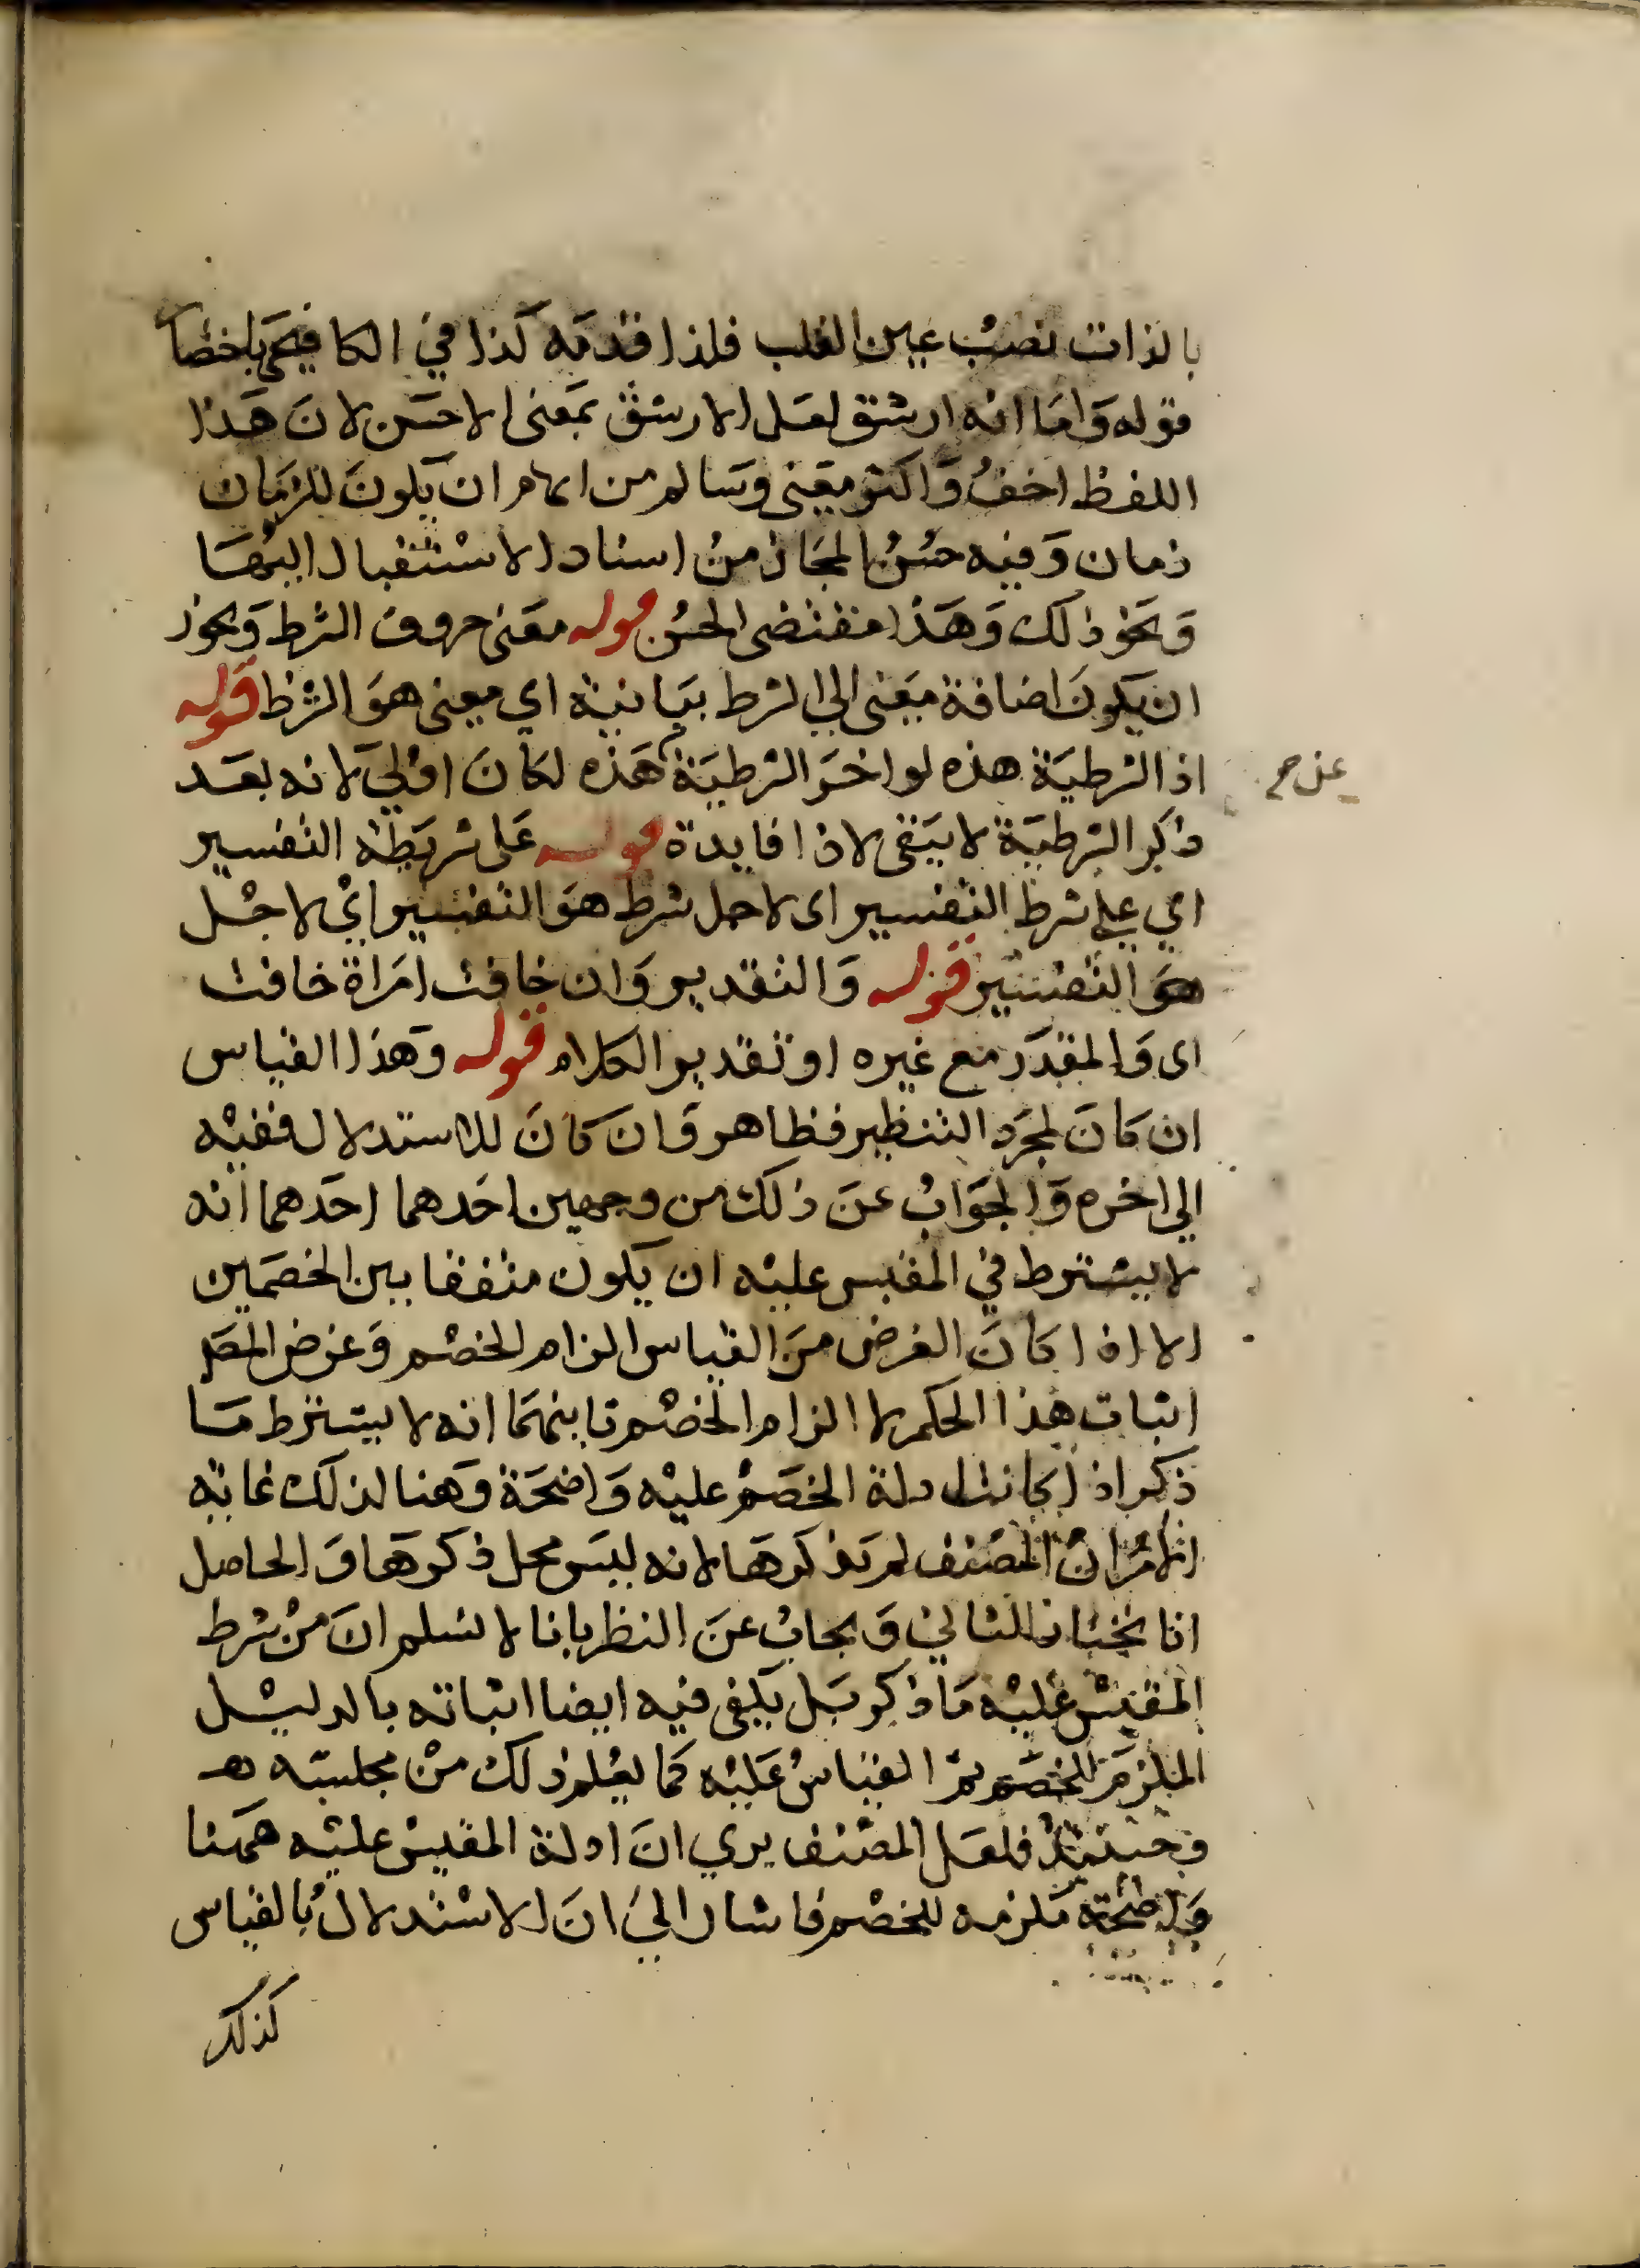 بالذات نصب عين القلب فلذا قدمه كذا في الكافيجي باختصا
قوله واما انه ارشق لعل الارشق بمعنى الاحسن لان هذا
اللفظ اخف واكثر معنى وسالم من ايهام ان يكون للزمان
زمان وفيه حسن المجاز من اسناد الاستقبال اليها
ونحو ذلك وهذا مقتضى الحسن قوله معنى حروف الشرط ويجوز
ان يكون اضافة معنى الى الشرط بيانية اي معنى هو الشرط قوله
اذا الشرطية هذه لو اخر الشرطية هذه لكان اولى لانه بعد
عن ح
ذكر الشرطية لا يبقى لاذا فايدة قوله على شريطة التفسير
اي على شرط التفسير اى لاجل شرط هو التفسير اي لاجل
هو التفسير قوله والتقدير وان خافت امراة خافت
اى والمقدر مع غيره او تقدير الكلام قوله وهذا القياس
ان كان لمجرد التنظير فظاهر وان كان للاستدلال ففيه
الى اخره والجواب عن ذلك من وجهين احدهما احدهما انه
لا يشترط في المقيس عليه ان يكون متفقا بين الخصمين
الا اذا كان الغرض من القياس الزام الخصم وغرض المصر
اثبات هذا الحكم لا الزام الخصم ثانيهما انه لا يشترط ما
ذكر اذا كانت ادلة الخصم عليه واضحة وهنا لذلك غاية
الامر ان المصنف لم يذكرها لانه ليس محل ذكرها والحاصل
انا نختار الثاني ويجاب عن النظر بانا لا نسلم ان من شرط
المقيس عليه ما ذكر بل يكفى فيه ايضا اثباته بالدليل
الملزم للخصم ثم القياس عليه كما يعلم ذلك من مجلسه هـ
وحينئذ فلعل المصنف يرى ان ادلة المقيس عليه ههنا
واضحة ملزمه للخصم فاشار الى ان الاستدلال بالقياس
كذلك